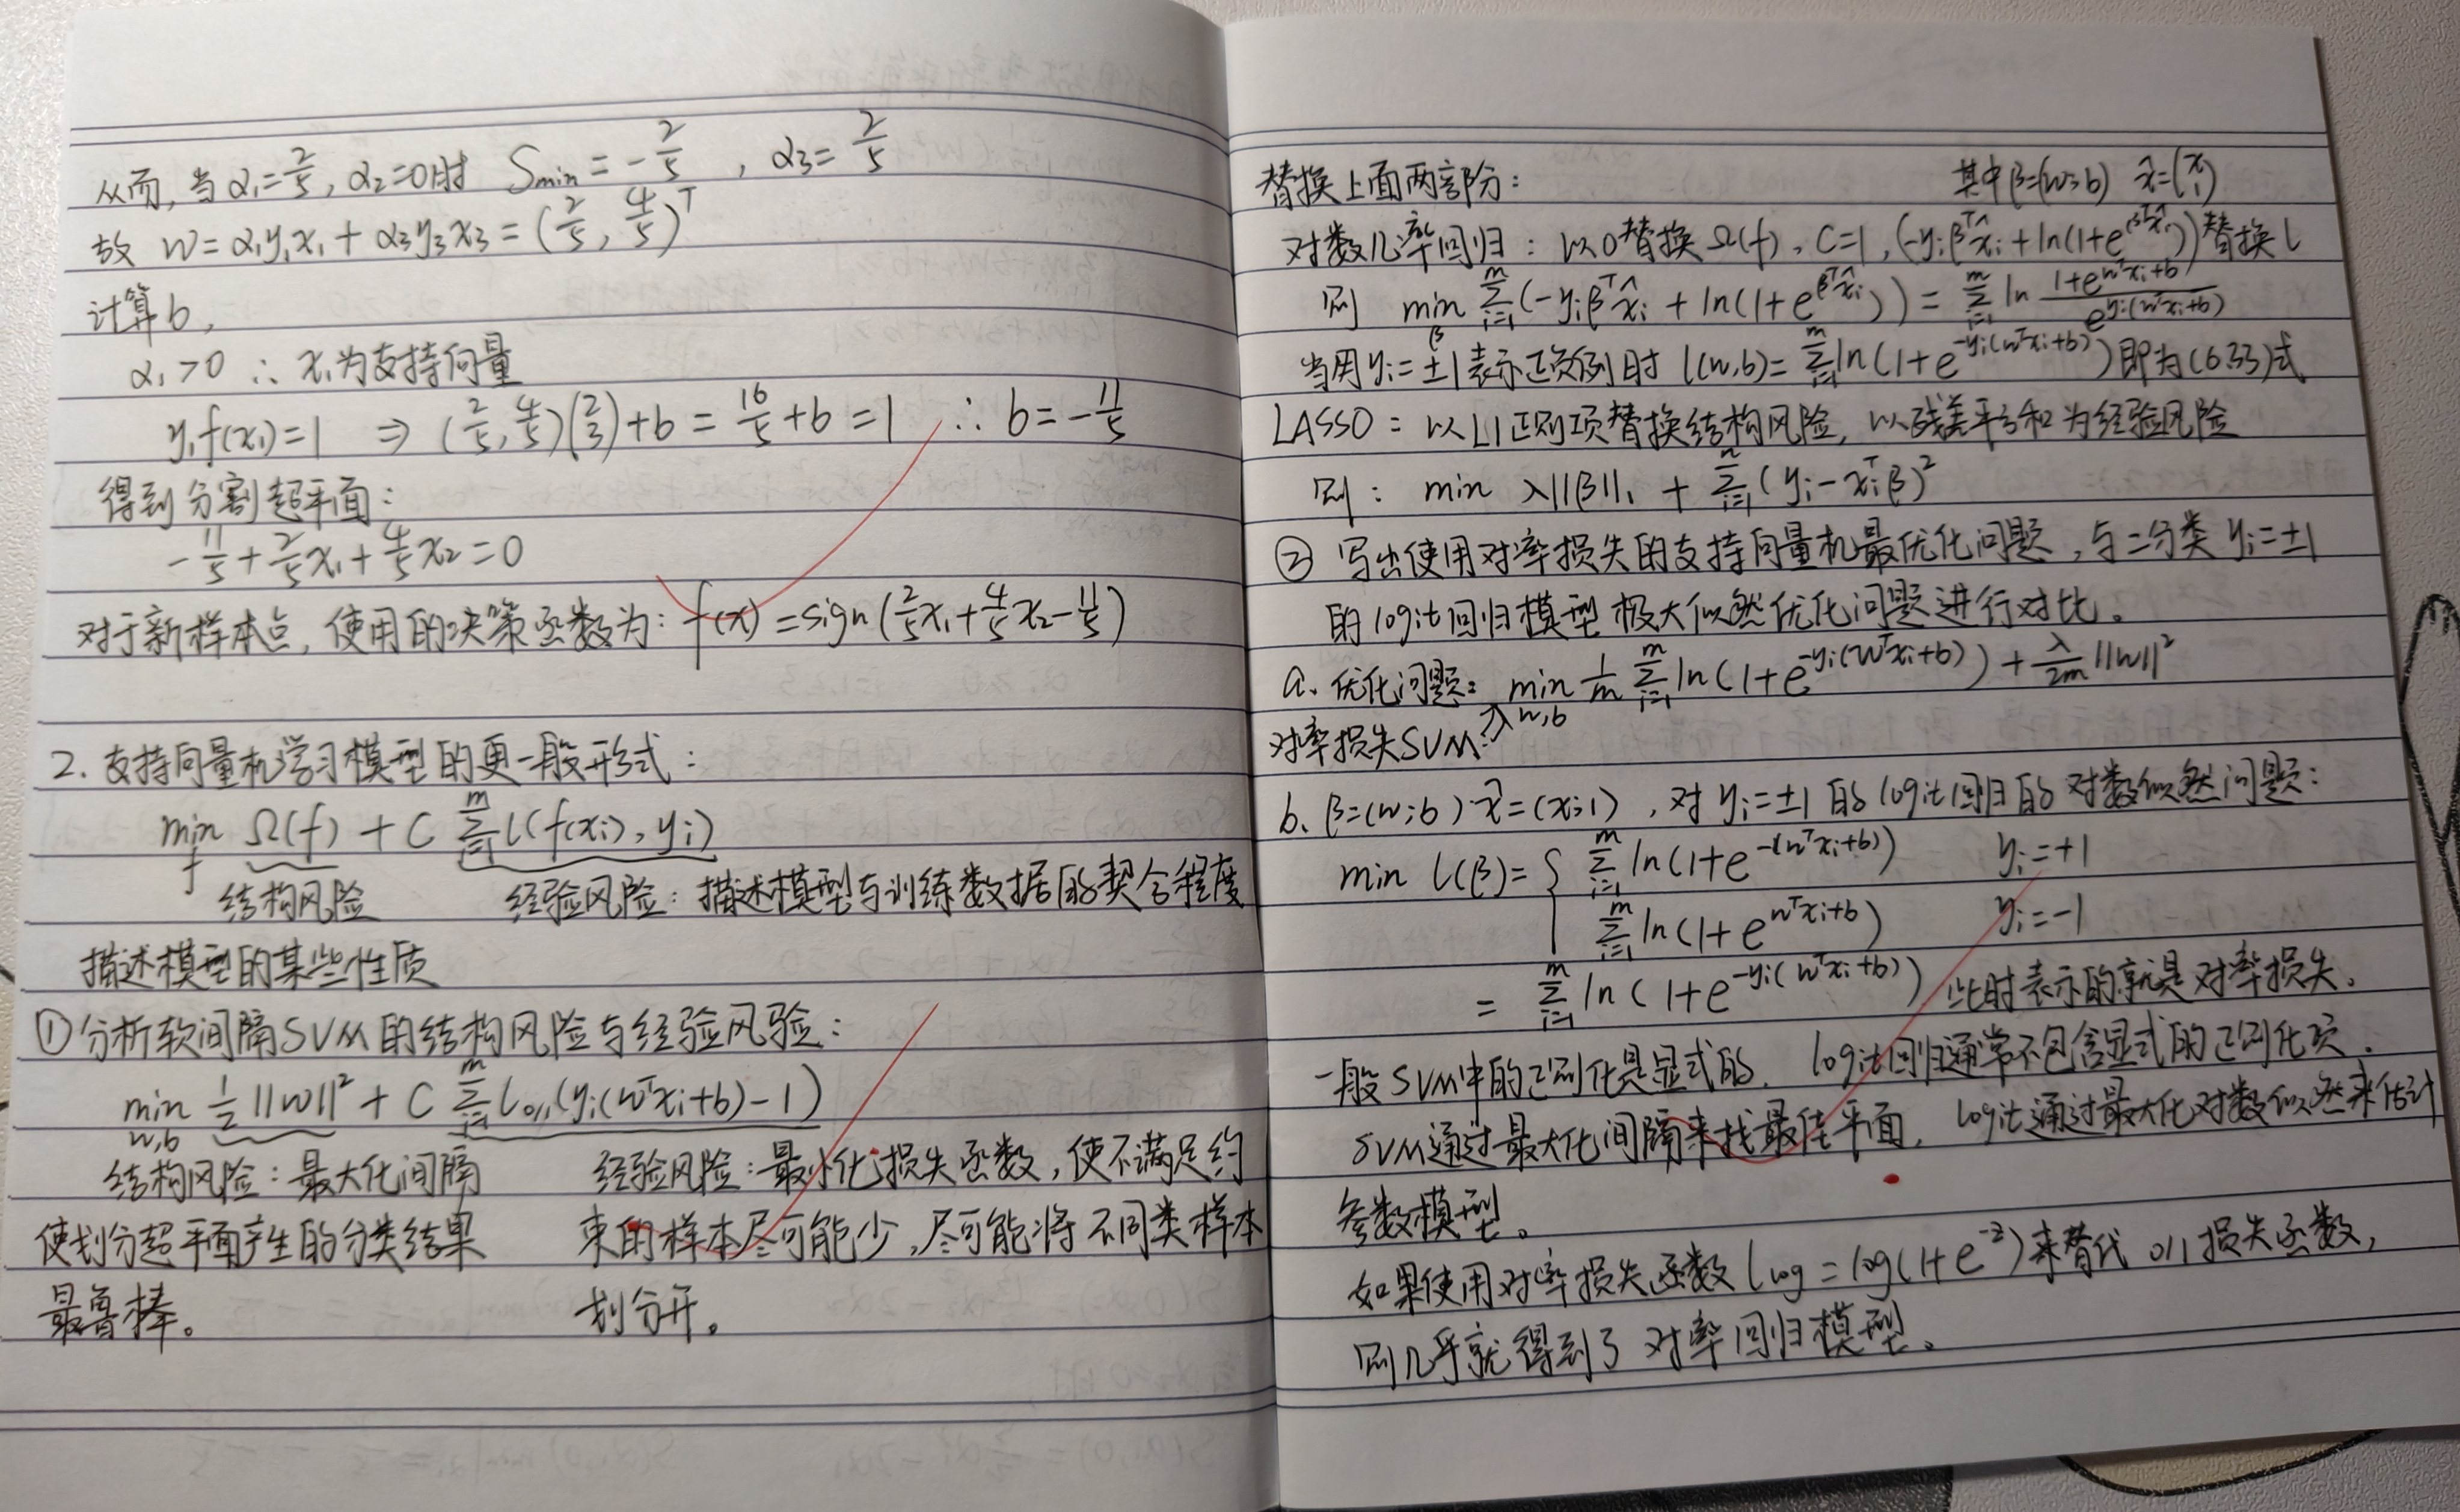 从而,当α₁=2/5, α₂=0时 Smin = -2/5 , α₃= 2/5
故 w=α₁y₁x₁ + α₃y₃x₃ = (2/5, 4/5)ᵀ
计算b,
α₁>0 ∴ x₁为支持向量
y₁f(x₁)=1 ⇒ (2/5, 4/5)(2 3)+b = 16/5 +b =1 ∴ b=-11/5
得到分割超平面:
-11/5 + 2/5 x₁ + 4/5 x₂ =0
对于新样本点, 使用的决策函数为: f(x) = sign(2/5 x₁ + 4/5 x₂ - 11/5)
2. 支持向量机学习模型的更一般形式:
min f Ω(f) + C Σ i=1 m l(f(xᵢ), yᵢ)
结构风险 经验风险: 描述模型与训练数据的契合程度
描述模型的某些性质
①分析软间隔SVM的结构风险与经验风验:
min w,b 1/2 ||w||² + C Σ i=1 m l₀/₁(yᵢ(wᵀxᵢ+b)-1)
结构风险: 最大化间隔 经验风险: 最小化损失函数, 使不满足约
使划分超平面产生的分类结果 束的样本尽可能少, 尽可能将不同类样本
最鲁棒。 划分开。
替换上面两部分: 其中β=(w;b) x̂=(x 1)
对数几率回归: 以0替换Ω(f), C=1, (-yᵢβᵀx̂ᵢ + ln(1+e^(βᵀx̂ᵢ)))替换l
则 min β Σ i=1 m (-yᵢβᵀx̂ᵢ + ln(1+e^(βᵀx̂ᵢ))) = Σ i=1 m ln (1+e^(wᵀxᵢ+b))/(e^(yᵢ(wᵀxᵢ+b)))
当用yᵢ=±1表示正负例时 l(w,b)= Σ i=1 m ln(1+e^(-yᵢ(wᵀxᵢ+b)))即为(6.33)式
LASSO: 以L1正则项替换结构风险, 以残差平方和为经验风险
则: min λ||β||₁ + Σ i=1 n (yᵢ-xᵢᵀβ)²
② 写出使用对率损失的支持向量机最优化问题, 与二分类 yᵢ=±1
的logit回归模型极大似然优化问题进行对比。
a. 优化问题: min w,b 1/m Σ i=1 m ln(1+e^(-yᵢ(wᵀxᵢ+b))) + λ/2m ||w||²
对率损失SVM:
b. β=(w;b) x̂=(x;1) , 对 yᵢ=±1 的logit回归的对数似然问题:
min l(β)= { Σ i=1 m ln(1+e^(-(wᵀxᵢ+b))) yᵢ=+1
Σ i=1 m ln(1+e^(wᵀxᵢ+b)) yᵢ=-1
= Σ i=1 m ln(1+e^(-yᵢ(wᵀxᵢ+b))) 此时表示的就是对率损失.
一般SVM中的正则化是显式的. logit回归通常不包含显式的正则化项.
SVM通过最大化间隔来找最佳平面. logit通过最大化对数似然来估计
参数模型。
如果使用对率损失函数 l log = log(1+e^(-z))来替代 0/1 损失函数,
则几乎就得到了对率回归模型。